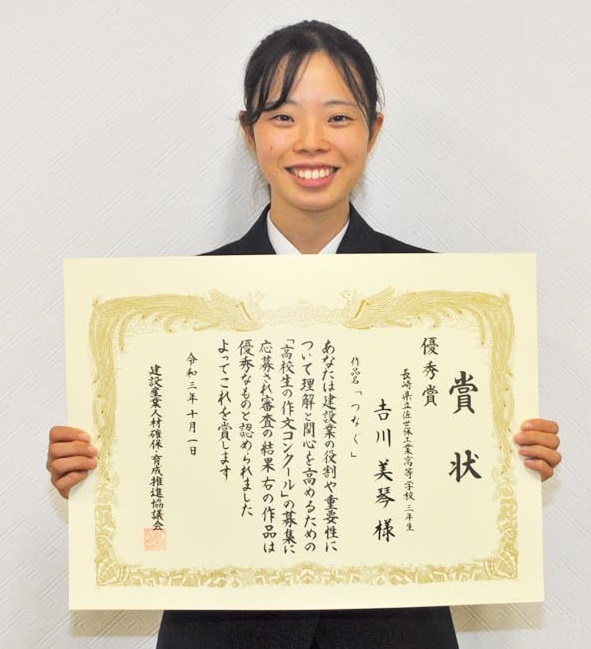 賞状
優秀賞
長崎県立佐世保工業高等学校 三年生
吉川美琴様
作品名「つなぐ」
あなたは建設業の役割や重要性に
ついて理解と関心を高めるための
「高校生の作文コンクール」の募集に
応募され審査の結果右の作品は
優秀なものと認められました
よってこれを賞します
令和三年十月一日
建設産業人材確保・育成推進協議会